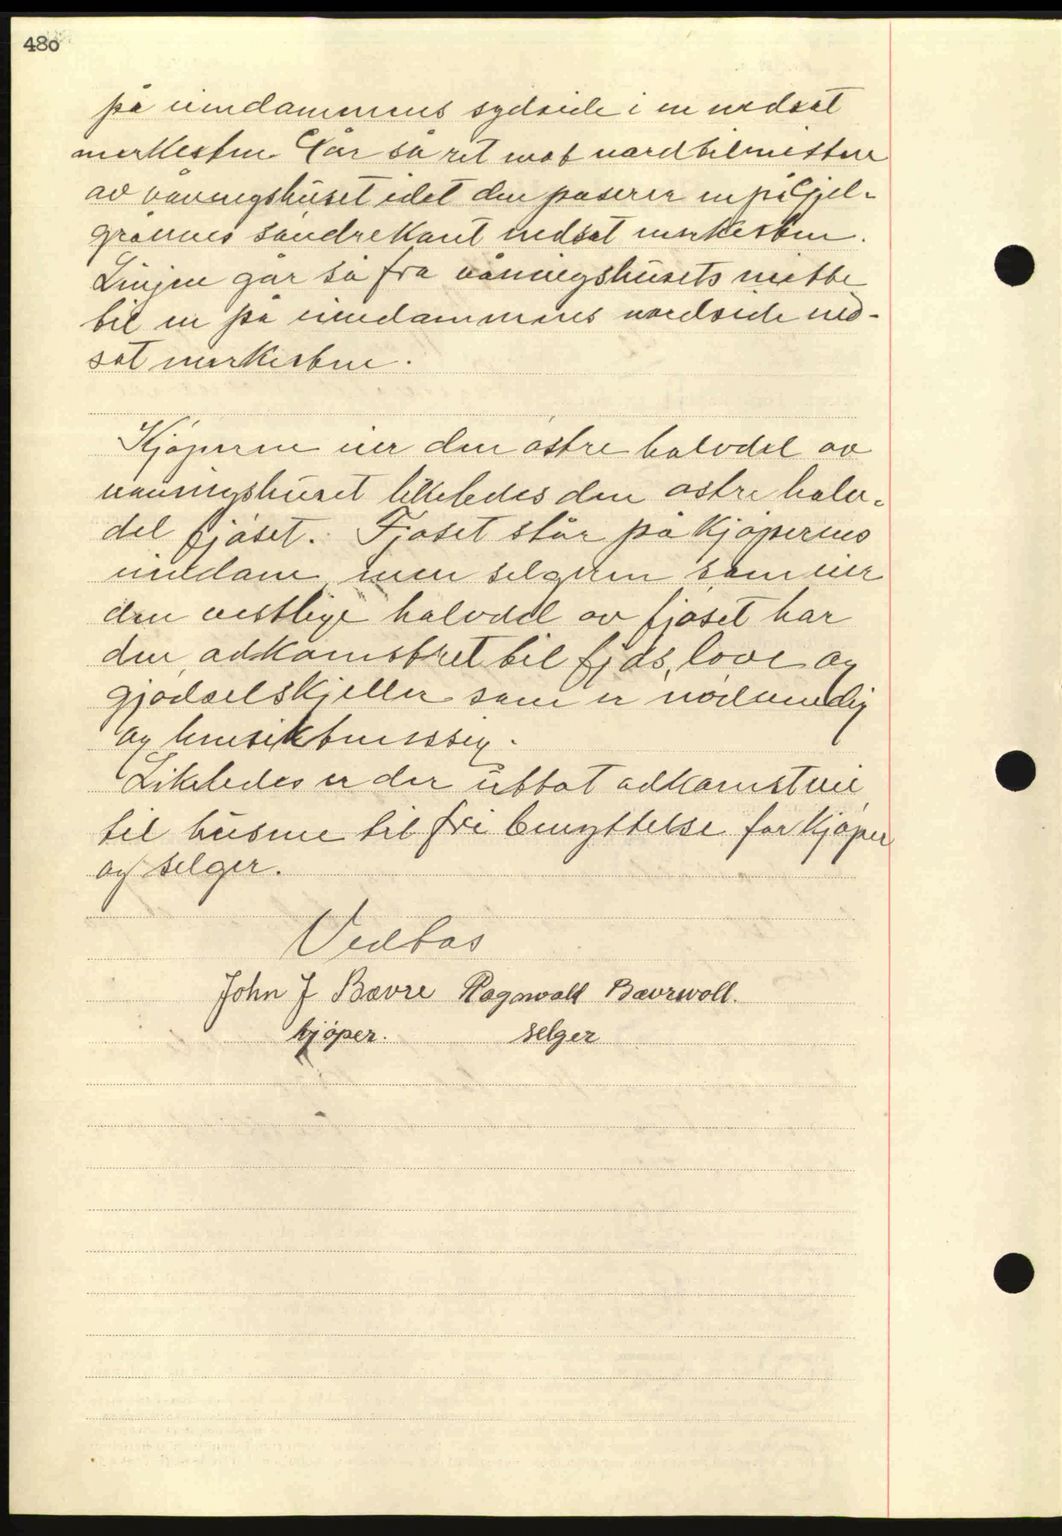 480
på iendammens sydside i en nedsat
merkesten. Går så ret mot nordtilmisten
av våningshuset idet den paserer en på Gjel-
grønnes søndrekant nedsat merkesten.
Linjen går så fra våningshusets mitte
til en på iendammens nordside ned-
sat merkesten.
Kjøperen eier den østre halvdel av
våningshuset likeledes den østre halv-
del fjøset. Fjøset står på kjøperens
eiendom, men selgeren som eier
den vestlige halvdel av fjøset har
den adkomstret til fjøs, love og
gjødselskjeller som er nødvendig
og hensiktsmessig.
Likeledes er der utlat adkomstvei
til husene til fri benyttelse for kjøper
og selger.
Vedtas
John J Bævre Ragnvald Bævrvoll.
kjøper. selger